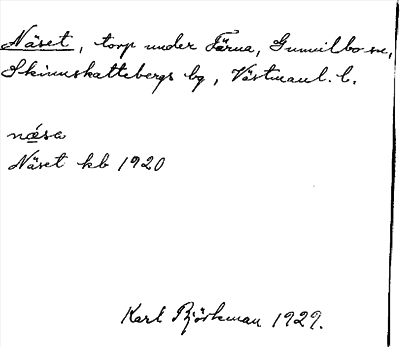 Näset, torp under Färna, Gunnilbo sn,
Skinnskattebergs bg, Västmanl. l.
næ´sa
Näset kb 1920
Karl Björkman 1929.